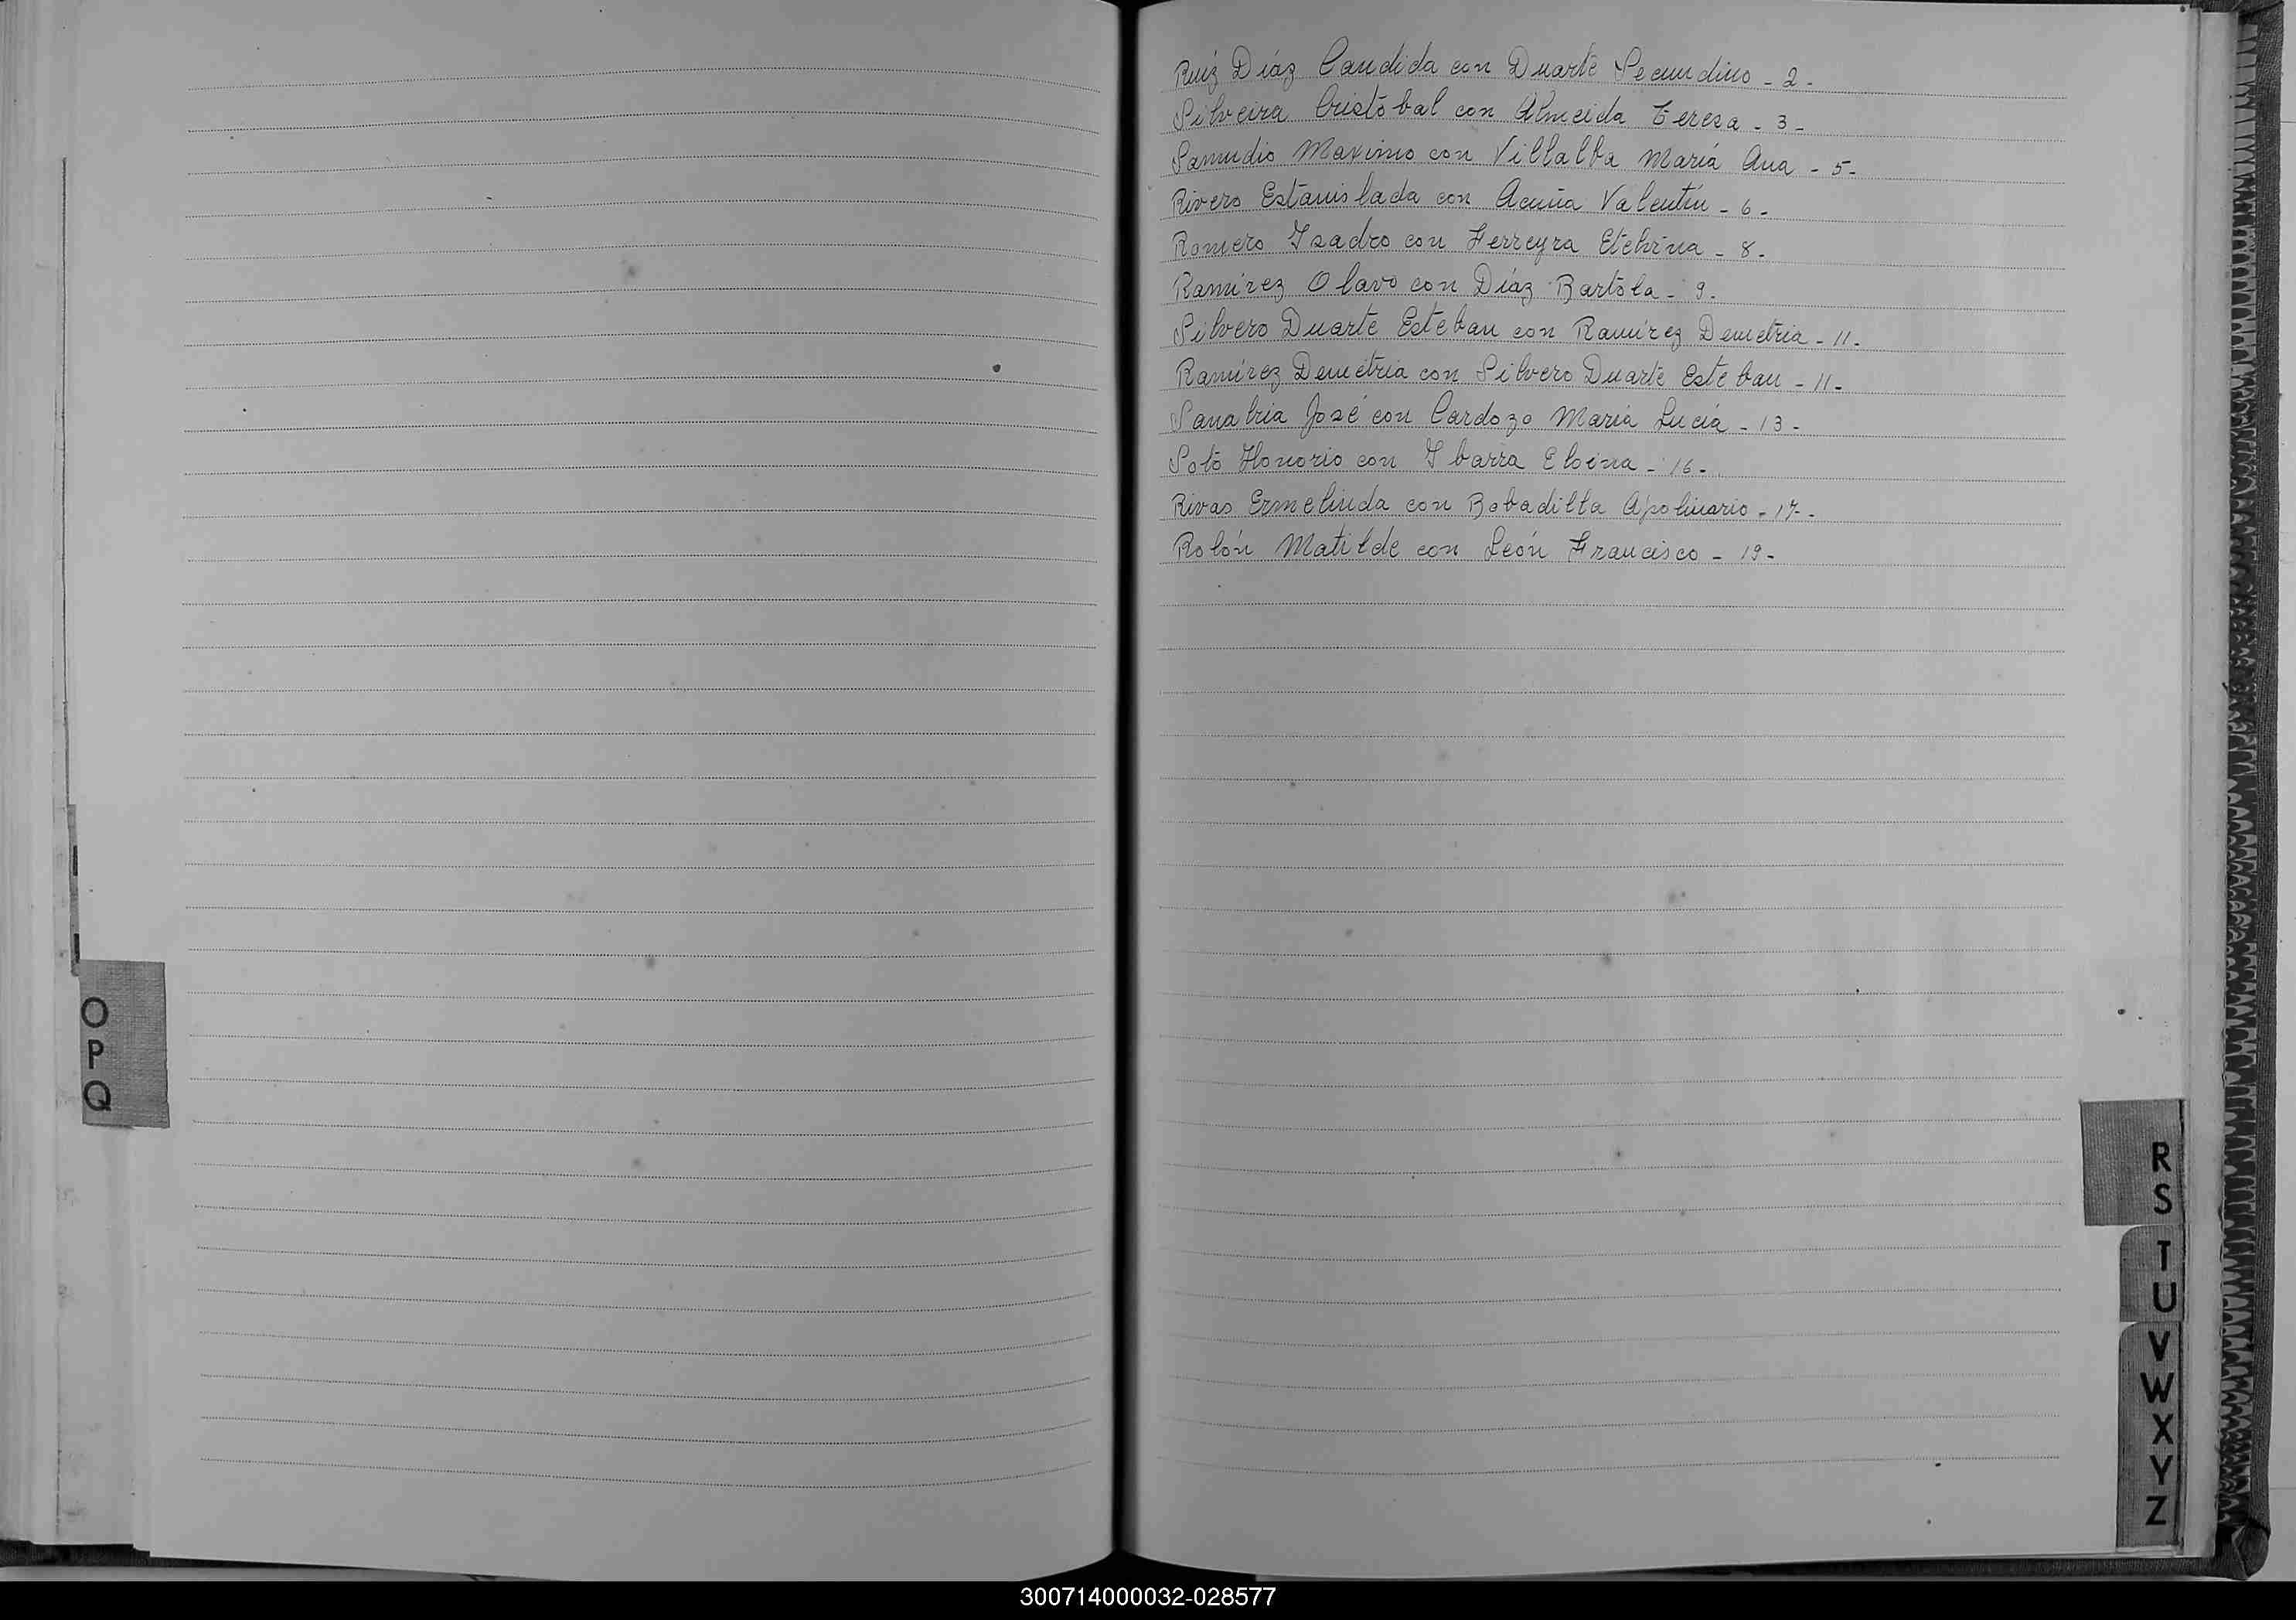 Ruiz Díaz Candida con Duarte Secundino - 2 -
Silveira Cristobal con Almeida Teresa - 3 -
Samudio Maximo con Villalba María Ana - 5 -
Rivero Estanislada con Acuña Valentín - 6 -
Romero Isadro con Ferreyra Etelvina - 8 -
Ramírez Olavo con Díaz Bartola - 9 -
Silvero Duarte Esteban con Ramírez Demetria - 11 -
Ramírez Demetria con Silvero Duarte Esteban - 11 -
Sanabria José con Cardozo María Lucía - 13 -
Soto Honorio con Ibarra Elvina - 16 -
Rivas Ermelinda con Bobadilla Apolinario - 17 -
Rolón Matilde con León Francisco - 19 -
O
P
Q
R
S
T
U
V
W
X
Y
Z
300714000032-028577